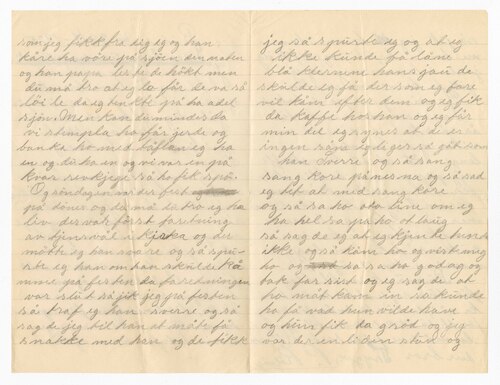 som jeg fikk fra dig og han
kåre ha vore på sjöen den naten
og han papa leste de hökt men
du må tro at eg lo får de va så
löi le da eg tenkte på ha adel
sjön. Men kan du mindes da
vi stumpla ho får jerde og
banka ho med eg ha
en og du ha en og vi var in på
kvar
Og söndagen var der fest
på töner og du må tro eg ha
liv der var först fortning
av tjenswål i kjerka og der
mötte eg han svare og så spu-
rte eg han om han skulde kå
mme på festen da foredningen
var slut så jik jeg på festen
så traf eg han sverre og så
sa de jeg til han at måtte få
snakke med han og de fikk
jeg så spurte eg og at eg
ikke kunde på låne
blå kternene hans jau de
skulde eg få der som eg bare
vil kåm efter dem og eg fik
da kaffe hos han og eg får
min del eg synes at de er
ingen som leger så gåt som
han Sverre og så sang
sang kore pånesna og så sad
eg tet at med sang kore
og så sa ho oto line om eg
ha hel sa på ho otlaug
så sag de eg at eg kjende hende
ikke og så kåm ho og vist meg
ho og så sa ho godag og
bak far sist og eg sag de at
ho måt kåm in så kunde
ho få vad hun vilde have
og hun fik da gröd og jeg
var der en liden stun og